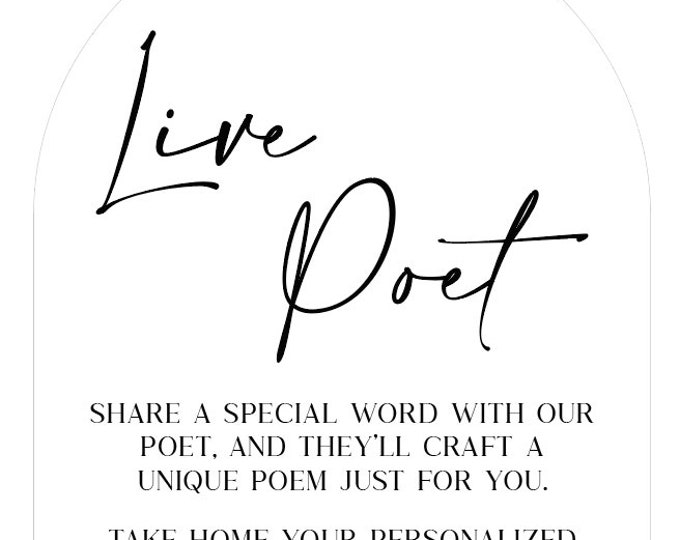 Live
Poet
SHARE A SPECIAL WORD WITH OUR
POET, AND THEY'LL CRAFT A
UNIQUE POEM JUST FOR YOU.
TAKE HOME YOUR PERSONALIZED